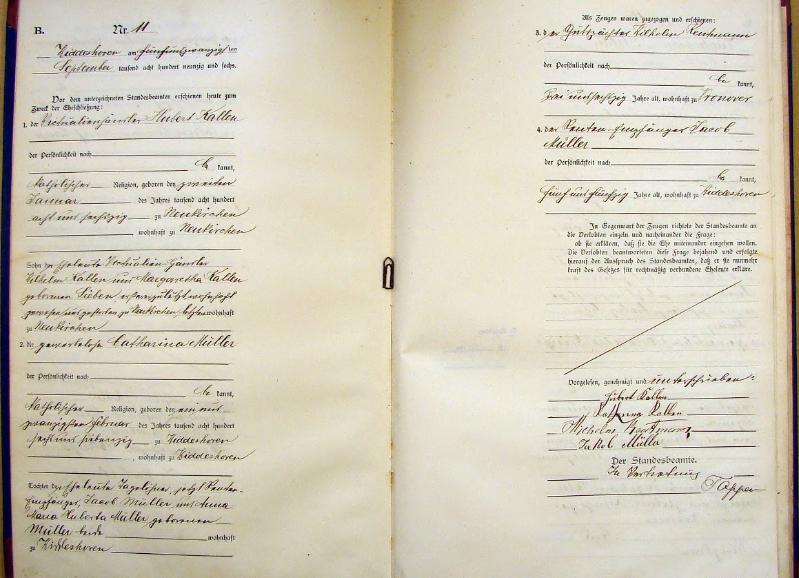 B.
Nr. 11
Hiddeshoven am fünfundzwanzigsten
September tausend acht hundert neunzig und sechs.
Vor dem unterzeichneten Standesbeamten erschienen heute zum
Zweck der Eheschließung:
1. der Hubert Kallen
der Persönlichkeit nach
be kannt,
katholischer Religion, geboren den zweiten
Januar des Jahres tausend acht hundert
acht und sechszig zu Neukirchen
, wohnhaft zu Neukirchen
Sohn der Eheleute
Wilhelm Kallen und Margaretha Kallen
geborenen
gewesen und gestorben zu Neukirchen, wohnhaft
zu Neukirchen
2. die gewerbelose Catharina Müller
der Persönlichkeit nach
be kannt,
katholischer Religion, geboren den ein und
zwanzigsten Februar des Jahres tausend acht hundert
sechs und siebenzig zu Hiddeshoven
, wohnhaft zu Hiddeshoven
Tochter der Eheleute Tagelöhner, jetzt Renten-
Empfänger, Jacob Müller und Anna
Maria Huberta Müller, geborenen
Müller beide wohnhaft
zu Hiddeshoven
Als Zeugen waren zugezogen und erschienen:
3. der Gutspächter Wilhelm
der Persönlichkeit nach
be kannt,
zwei und sechszig Jahre alt, wohnhaft zu Vronover
4. der Renten-Empfänger Jacob
Müller
der Persönlichkeit nach
be kannt,
fünf und fünfzig Jahre alt, wohnhaft zu Hiddeshoven
In Gegenwart der Zeugen richtete der Standesbeamte an
die Verlobten einzeln und nacheinander die Frage:
ob sie erklären, daß sie die Ehe miteinander eingehen wollen.
Die Verlobten beantworteten diese Frage bejahend und erfolgte
hierauf der Ausspruch des Standesbeamten, daß er sie nunmehr
kraft des Gesetzes für rechtmäßig verbundene Eheleute erkläre.
Vorgelesen, genehmigt und unterschrieben:
Hubert Kallen
Kallen
Wilhelm
Jakob Müller
Der Standesbeamte.
In Vertretung